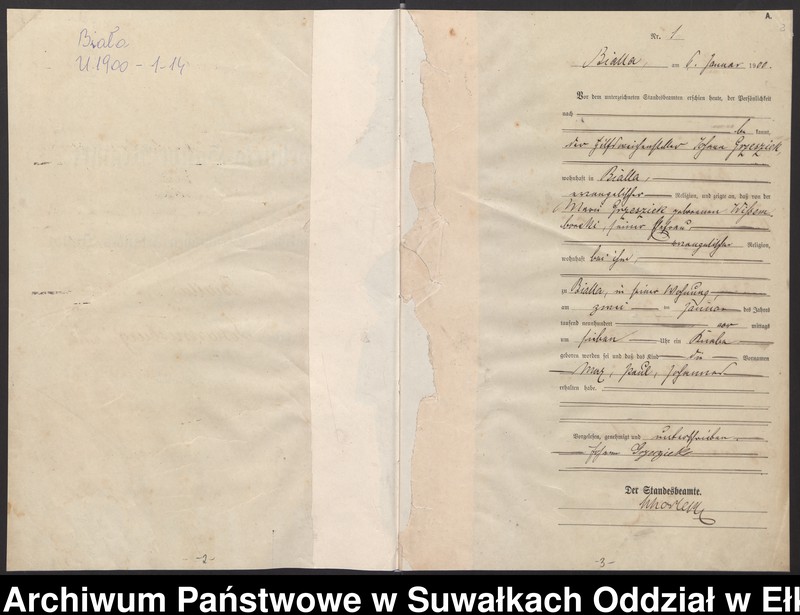 Biała
U 1900 - 1-14
- 2 -
A.
3
Nr. 1
Bialla, am 6. Januar 1900.
Vor dem unterzeichneten Standesbeamten erschien heute, der Persönlichkeit
nach
be kannt,
der Hilfsweichensteller Johann Grzeszick,
wohnhaft in Bialla,
evangelischer Religion, und zeigte an, daß von der
Marie Grzeszick geborenen
seiner Ehefrau,
evangelischer Religion,
wohnhaft bei ihm,
zu Bialla, in seiner Wohnung,
am zwei ten Januar des Jahres
tausend neunhundert vor mittags
um sieben Uhr ein Knabe
geboren worden sei und daß das Kind die Vornamen
Max, Paul, Johannes
erhalten habe.
Vorgelesen, genehmigt und unterschrieben.
Johann Grzeszick
Der Standesbeamte.
- 3 -
Archiwum Państwowe w Suwałkach Oddział w Eł